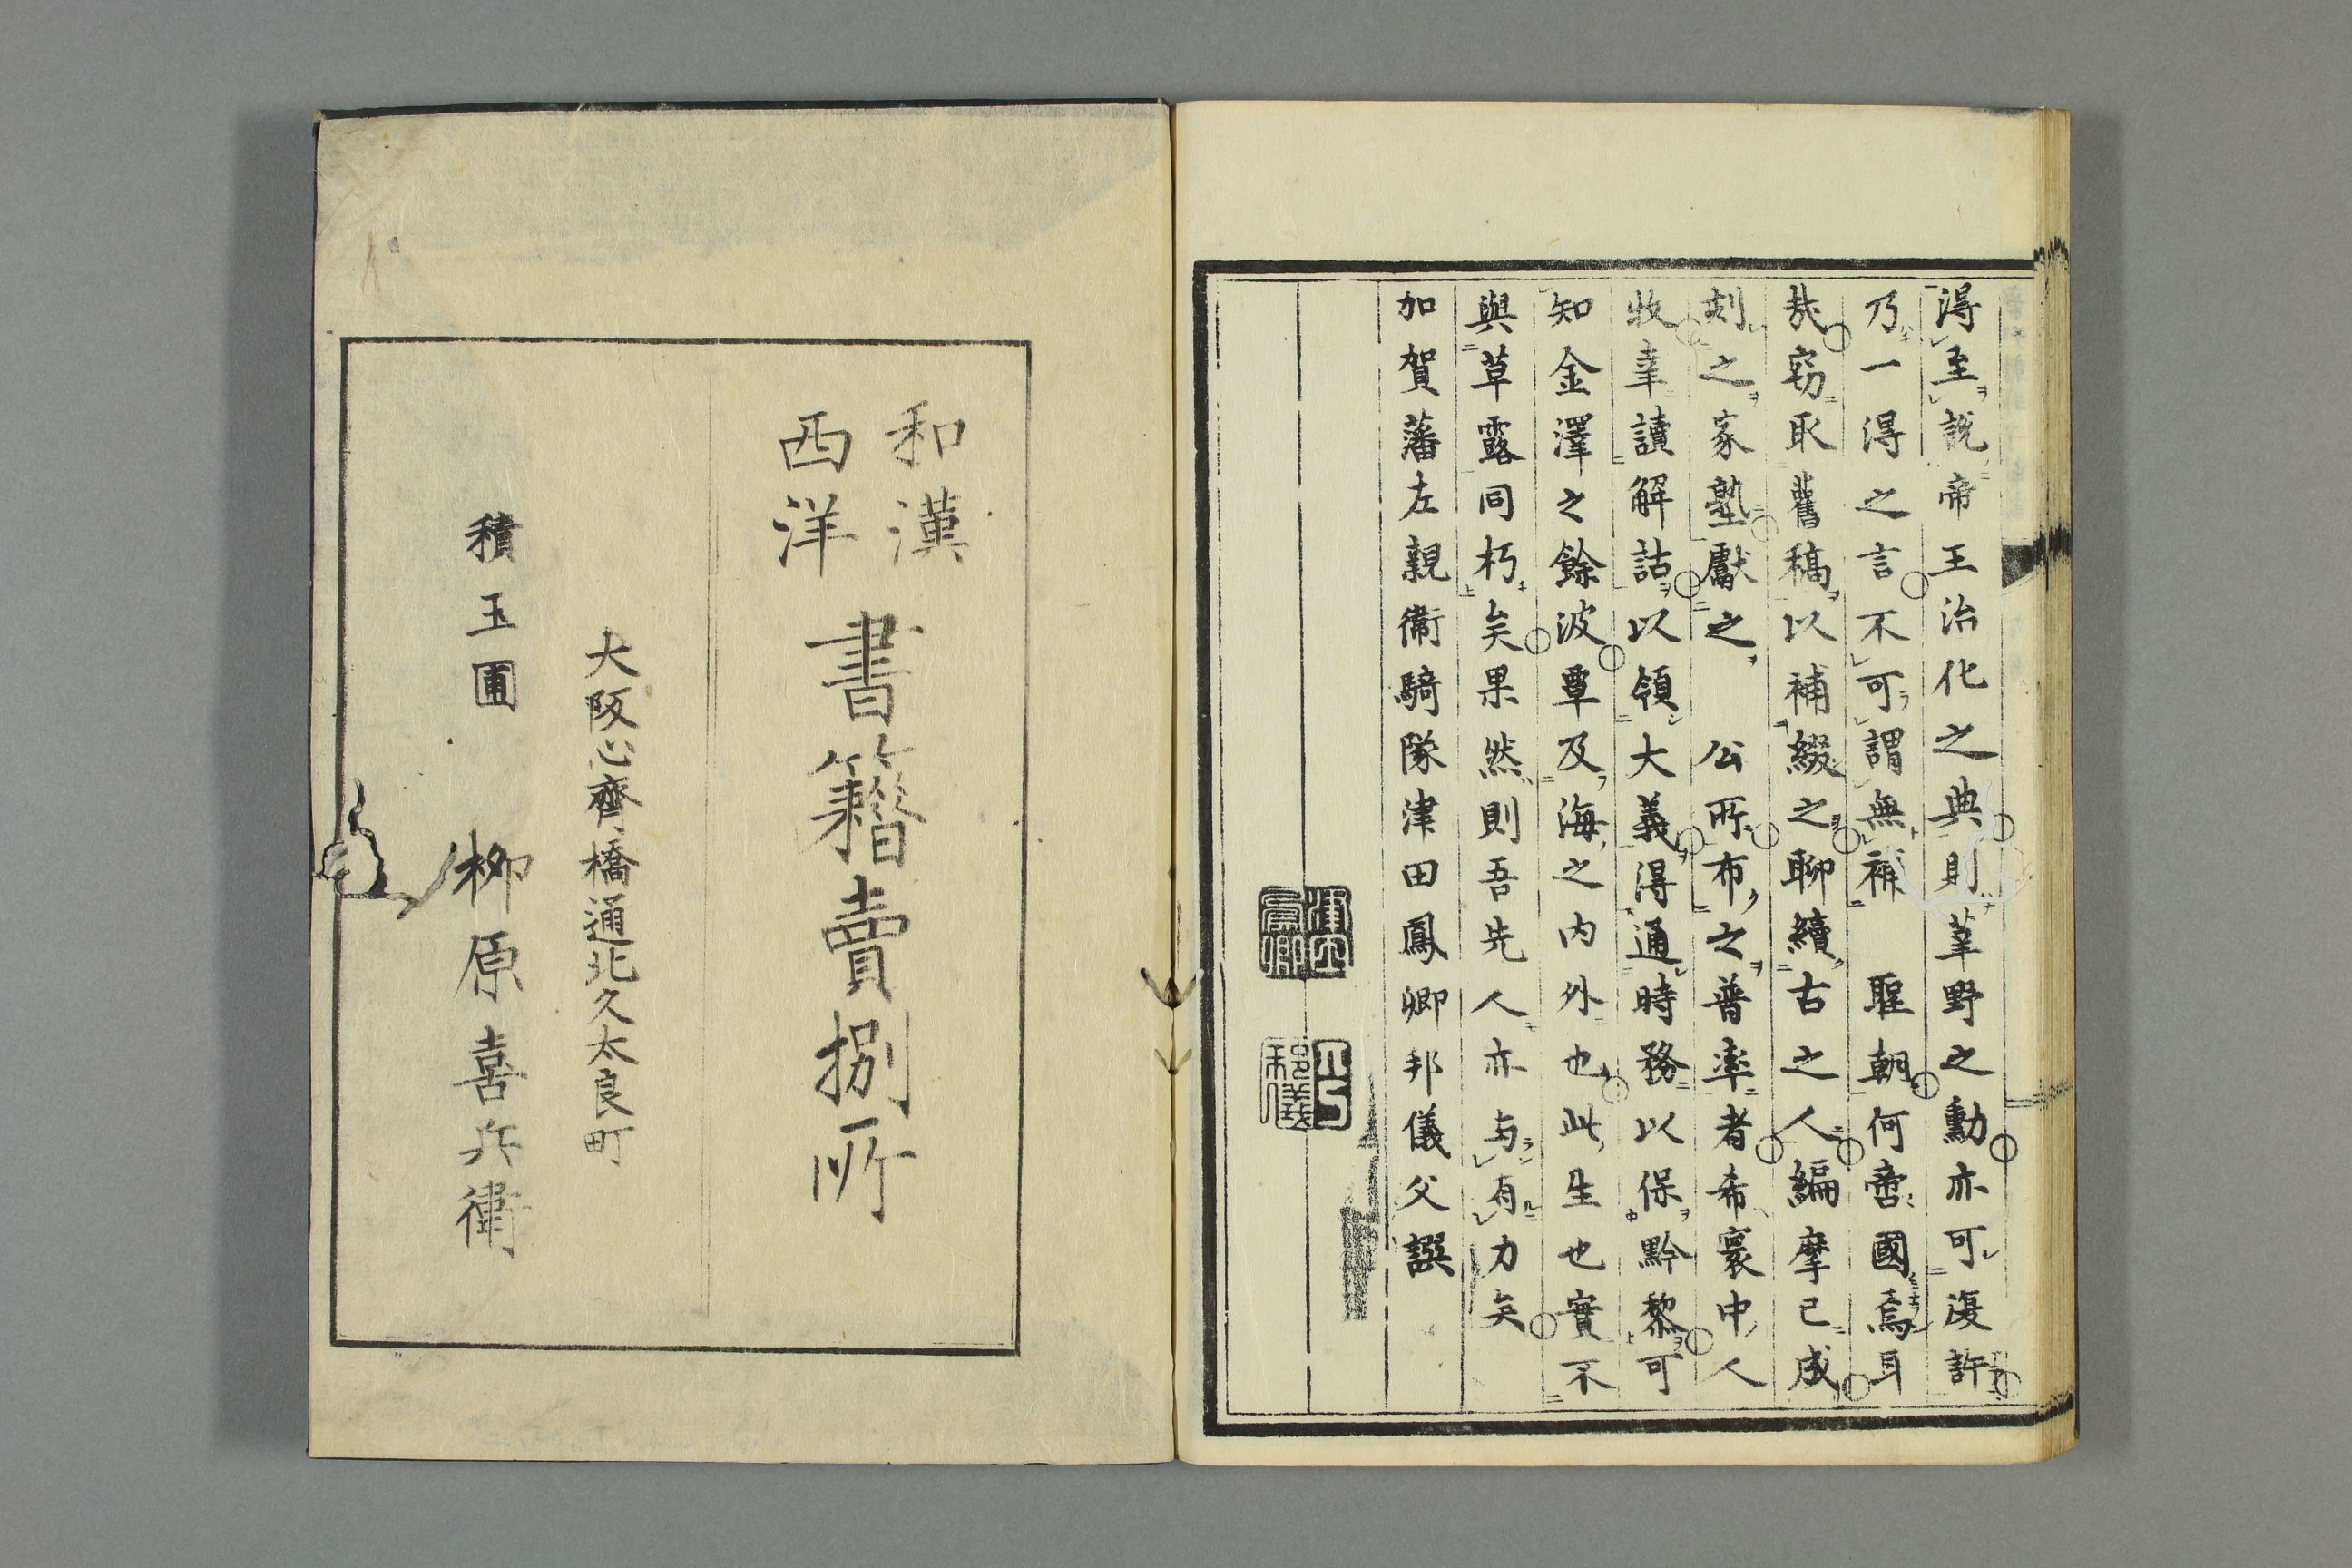 得至說帝王治化之典則莘野之勳亦可復許
乃一得之言不可謂無補　聖朝何啻國焉耳
哉窃取舊稿以補綴之聊續古之人編摩已成
刻之家塾獻之　公所布之普率者希寰中人
收幸讀解詁以領大義得通時務以保黔黎可
知金澤之餘波覃及海之内外也此生也實不
與草露同朽矣果然則吾先人亦与有力矣
加賀藩左親衞騎隊津田鳳卿邦儀父譔
和漢
西洋
書籍賣捌所
大阪心齊橋通北久太良町
積玉圃
柳原喜兵衞